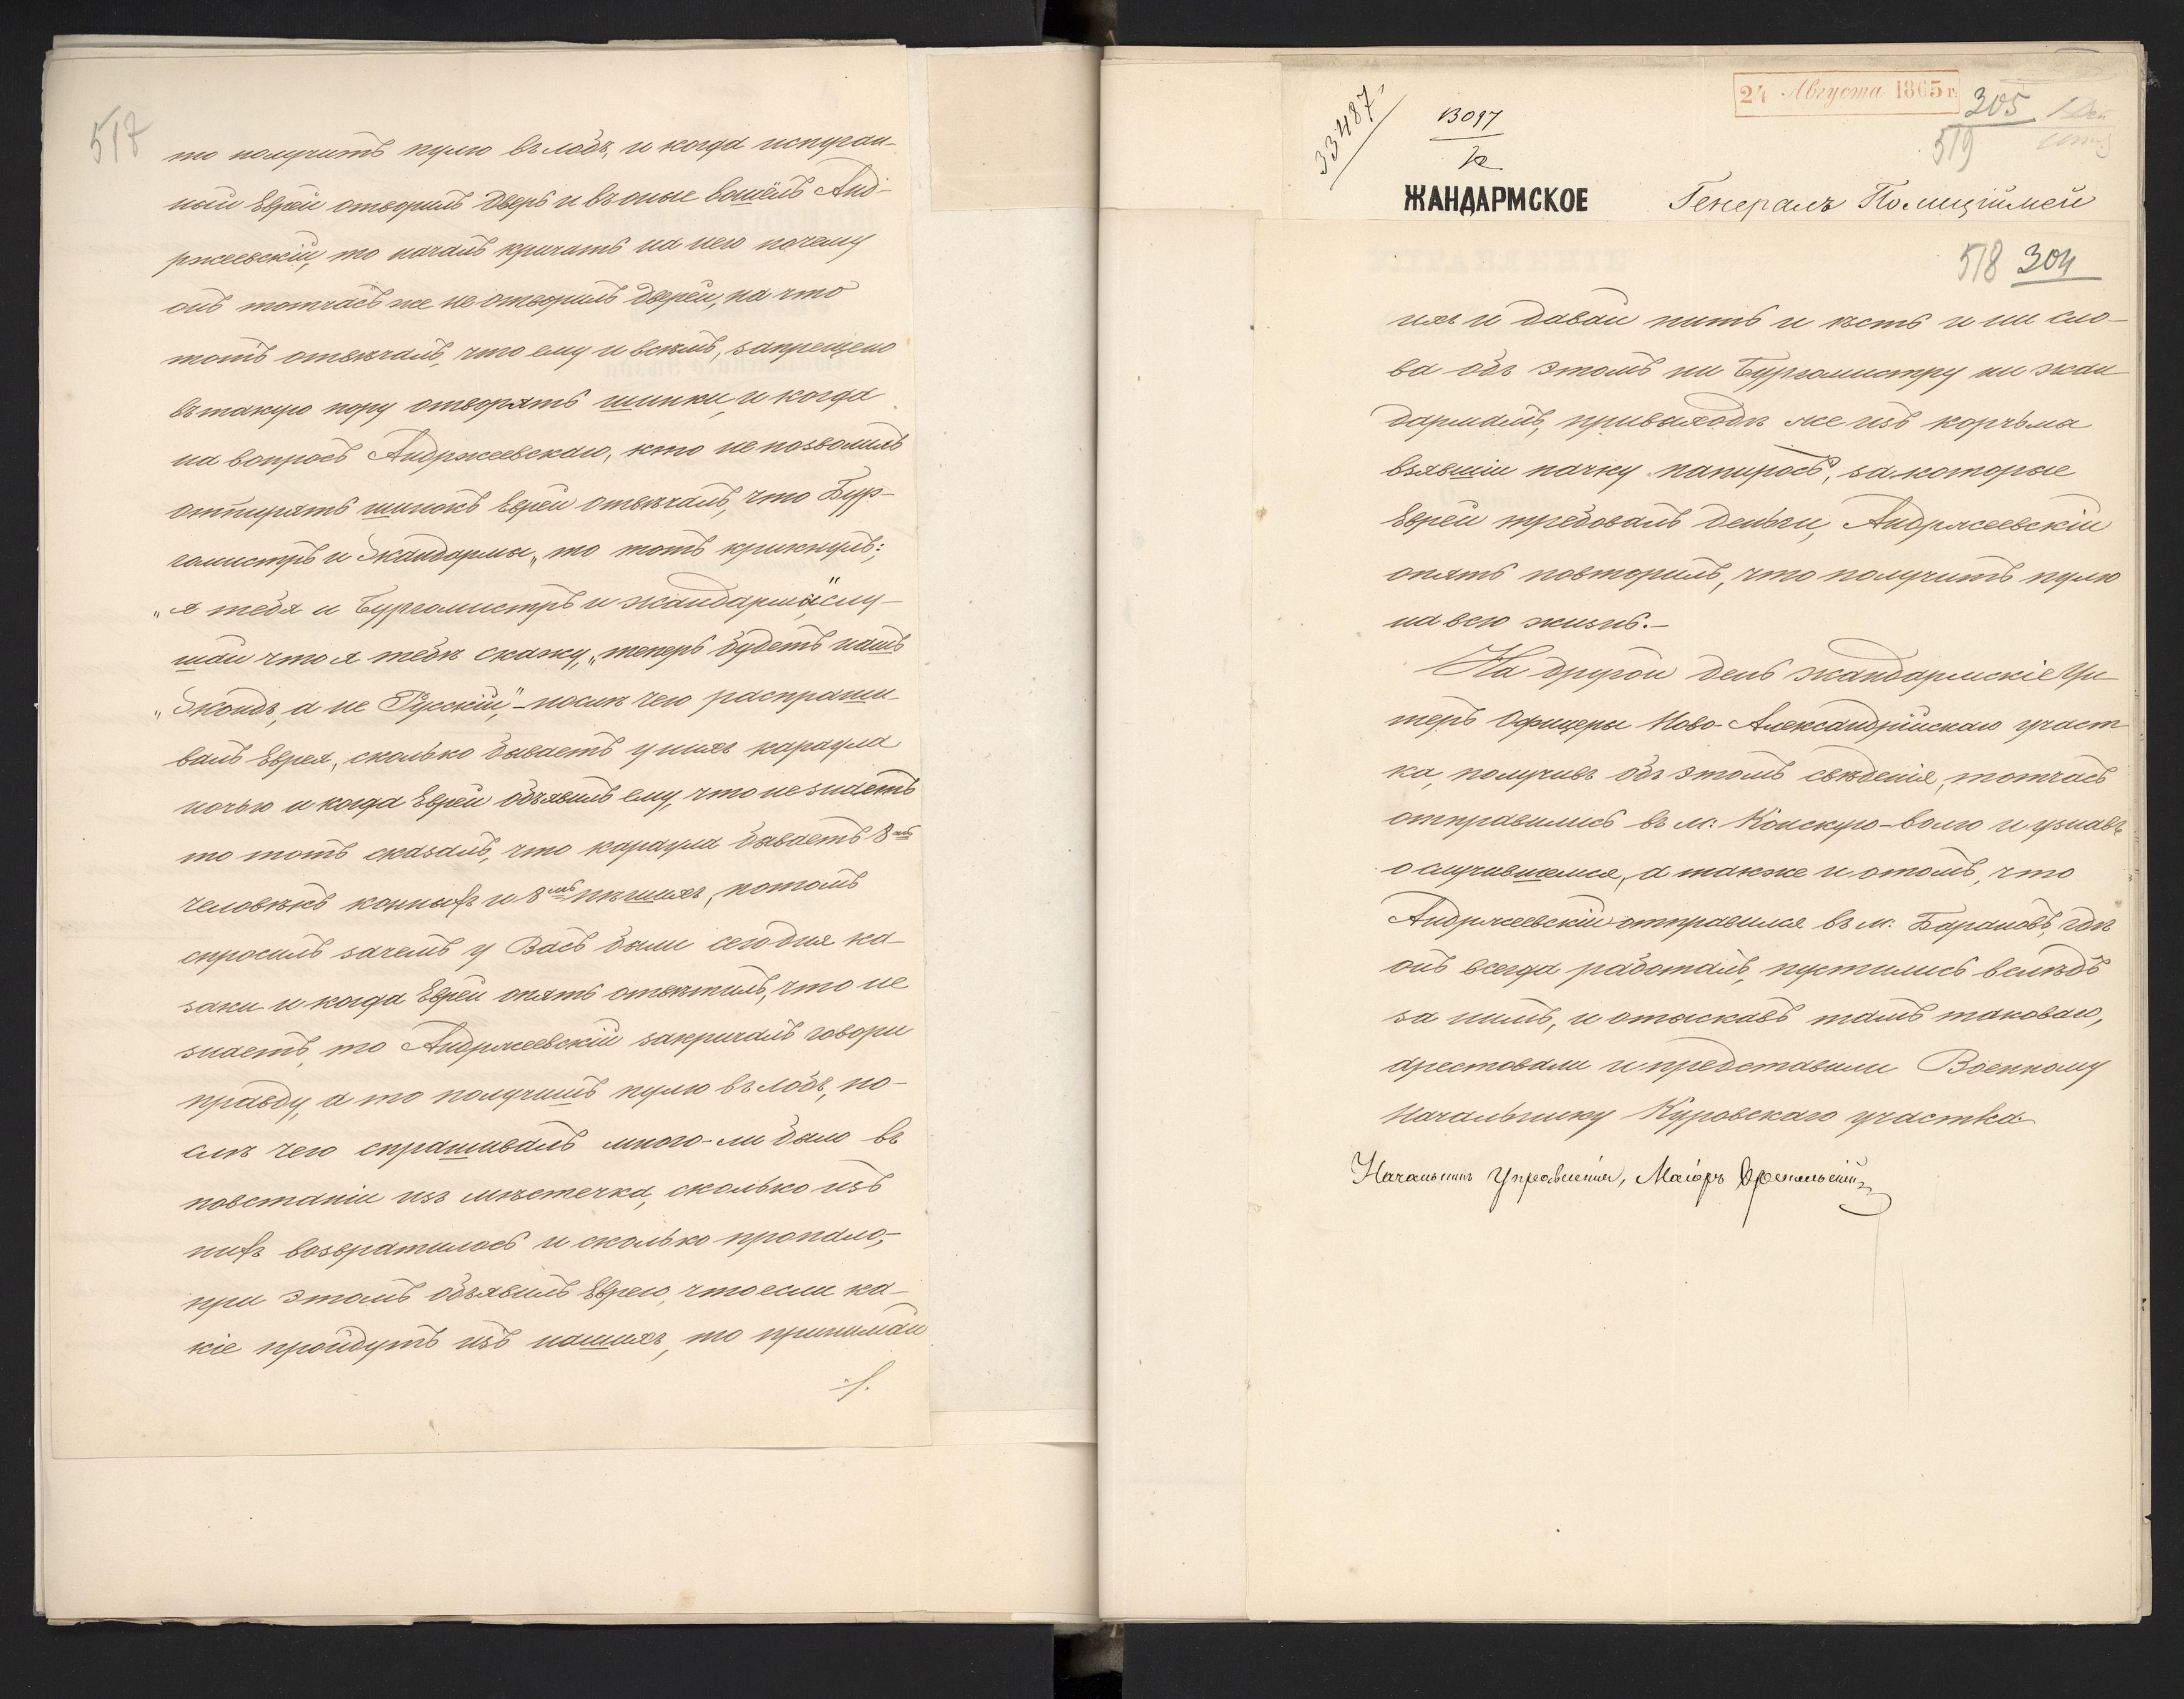 517
то получитъ пулю въ лобъ, и когда испуган-
ный Еврей отворилъ дверь и въ оные вошёлъ Анд-
ржеевскій, то началъ кричать на него почему
онъ тотчасъ же не отворилъ дверей, на что
тотъ отвѣчалъ, что ему и всѣмъ, запрещено
въ такую пору отворять шинки, и когда
на вопросъ Андржеевскаго, кто не позволилъ
отпирять шинокъ Еврей отвѣчалъ, что Бур-
гомистръ и Жандармы, то тотъ крикнулъ:
„я тебя и Бургомистръ и жандармы,“ слу-
шай что я тебѣ скажу, „теперь будетъ нашъ
„Жондъ, а не Русскій,“ – послѣ чего распраши-
валъ Еврея, сколько бываетъ у нихъ караула
ночью и когда Еврей объявилъ ему, что не знаетъ
то тотъ сказалъ, что караула бываетъ 8мь
человѣкъ конныхъ и 8мь пѣшихъ, потомъ
спросилъ зачемъ у Васъ были сегодня ка-
заки и когда Еврей опять отвѣтилъ, что не
знаетъ, то Андржеевскій закричалъ говори
правду, а то получишъ пулю въ лобъ, по-
слѣ чего спрашивалъ много-ли было въ
повстаніи изъ мѣстечка, сколько изъ
нихъ возвратилось и сколько пропало,-
при этомъ объявилъ Еврею, что если ка-
кіе пройдутъ изъ нашихъ, то принимай
./.
24 Августа 1865 г.
33487
13097
305
519
ЖАНДАРМСКОЕ
Генералъ Полиціймей
518 304
ихъ и давай пить и ѣсть и ни сло-
ва объ этомъ ни Бургомистру ни жан
дармамъ, привыходѣ же изъ корчьма
взявши пачку папиросъ, за которые
Еврей требовалъ деньги, Андржеевскій
опять повторилъ, что получитъ пулю
на всю жизнь.-
На другой день жандармскіе Ун
теръ Офицеры Ново-Александрійскаго участ
ка, получивъ объ этомъ свѣденія, тотчасъ
отправились въ м: Конскую-волю и узнавъ
о случившемся, а также и отомъ, что
Андржеевскій отправился въ м: Барановъ, гдѣ
онъ всегда работалъ, пустились вслѣдъ
за нимъ, и отыскавъ тамъ таковаго,
арестовали и представили Военному
Начальнику Куровскаго участка
Начальникъ Управленія, Маіоръ